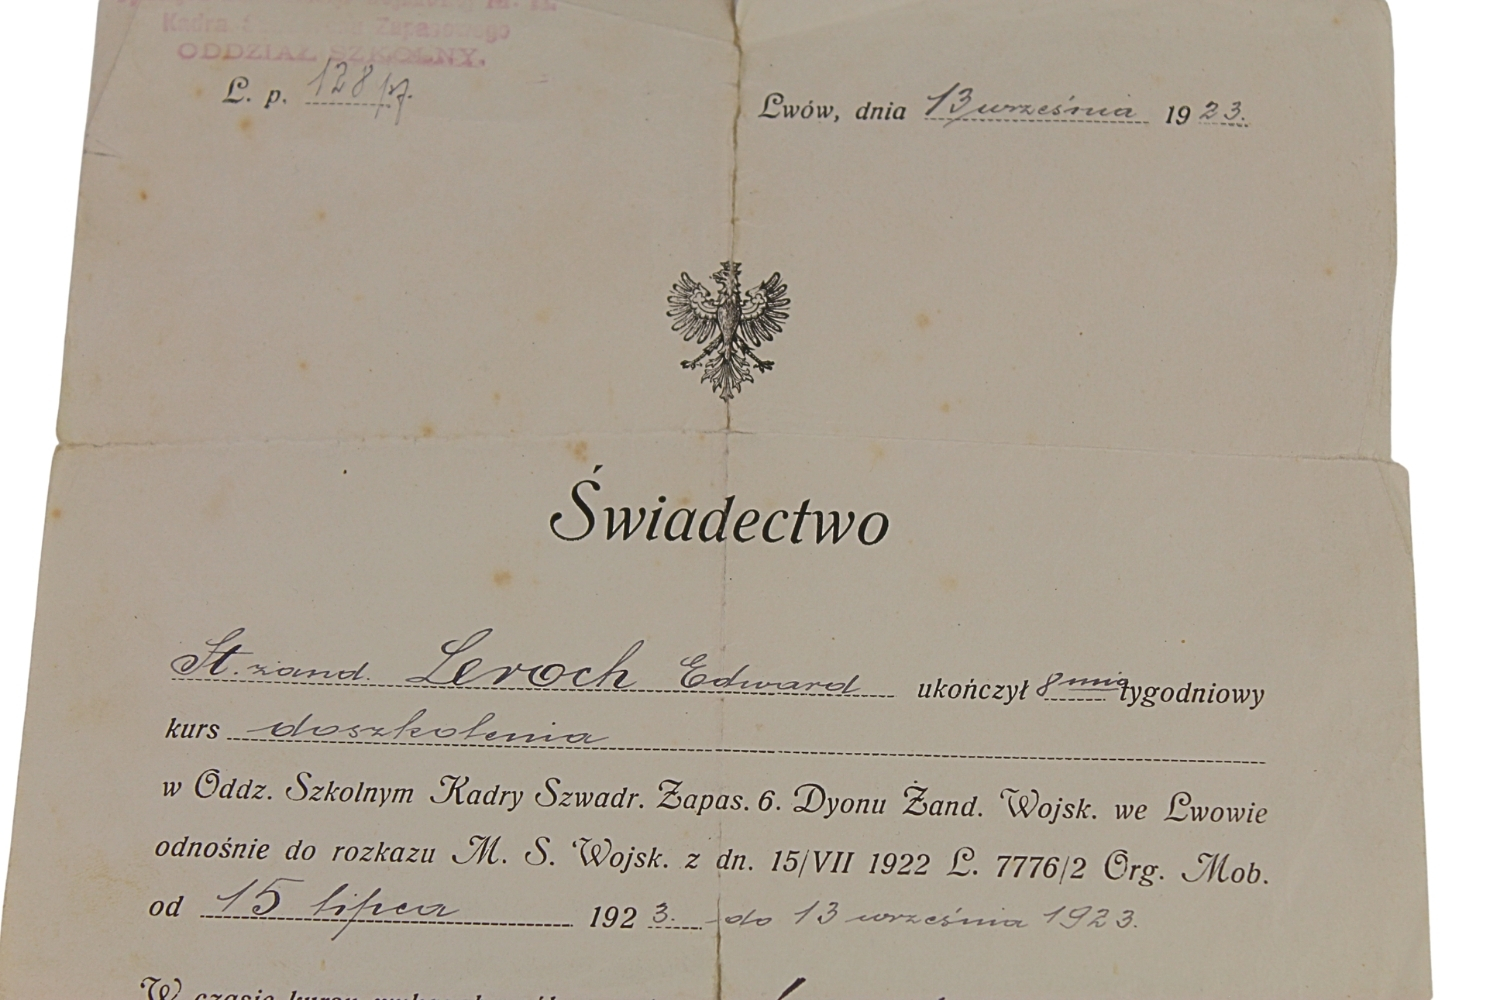 Kadra Szwadronu Zapasowego
ODDZIAŁ SZKOLNY.
L. p. 128
Lwów, dnia 13 września 1923.
Świadectwo
St. żand. Leroch Edward ukończył 8 mio tygodniowy
kurs doszkolenia
w Oddz. Szkolnym Kadry Szwadr. Zapas. 6. Dyonu Żand. Wojsk. we Lwowie
odnośnie do rozkazu M. S. Wojsk. z dn. 15/VII 1922 L. 7776/2 Org. Mob.
od 15 lipca 1923. do 13 września 1923.
W czasie kursu